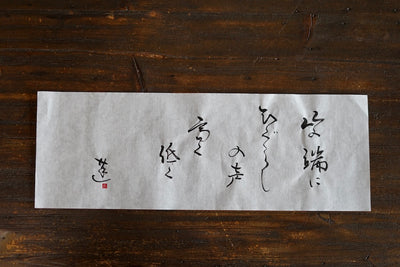 端に
ひぐらし
の声
高く
低く
蓮